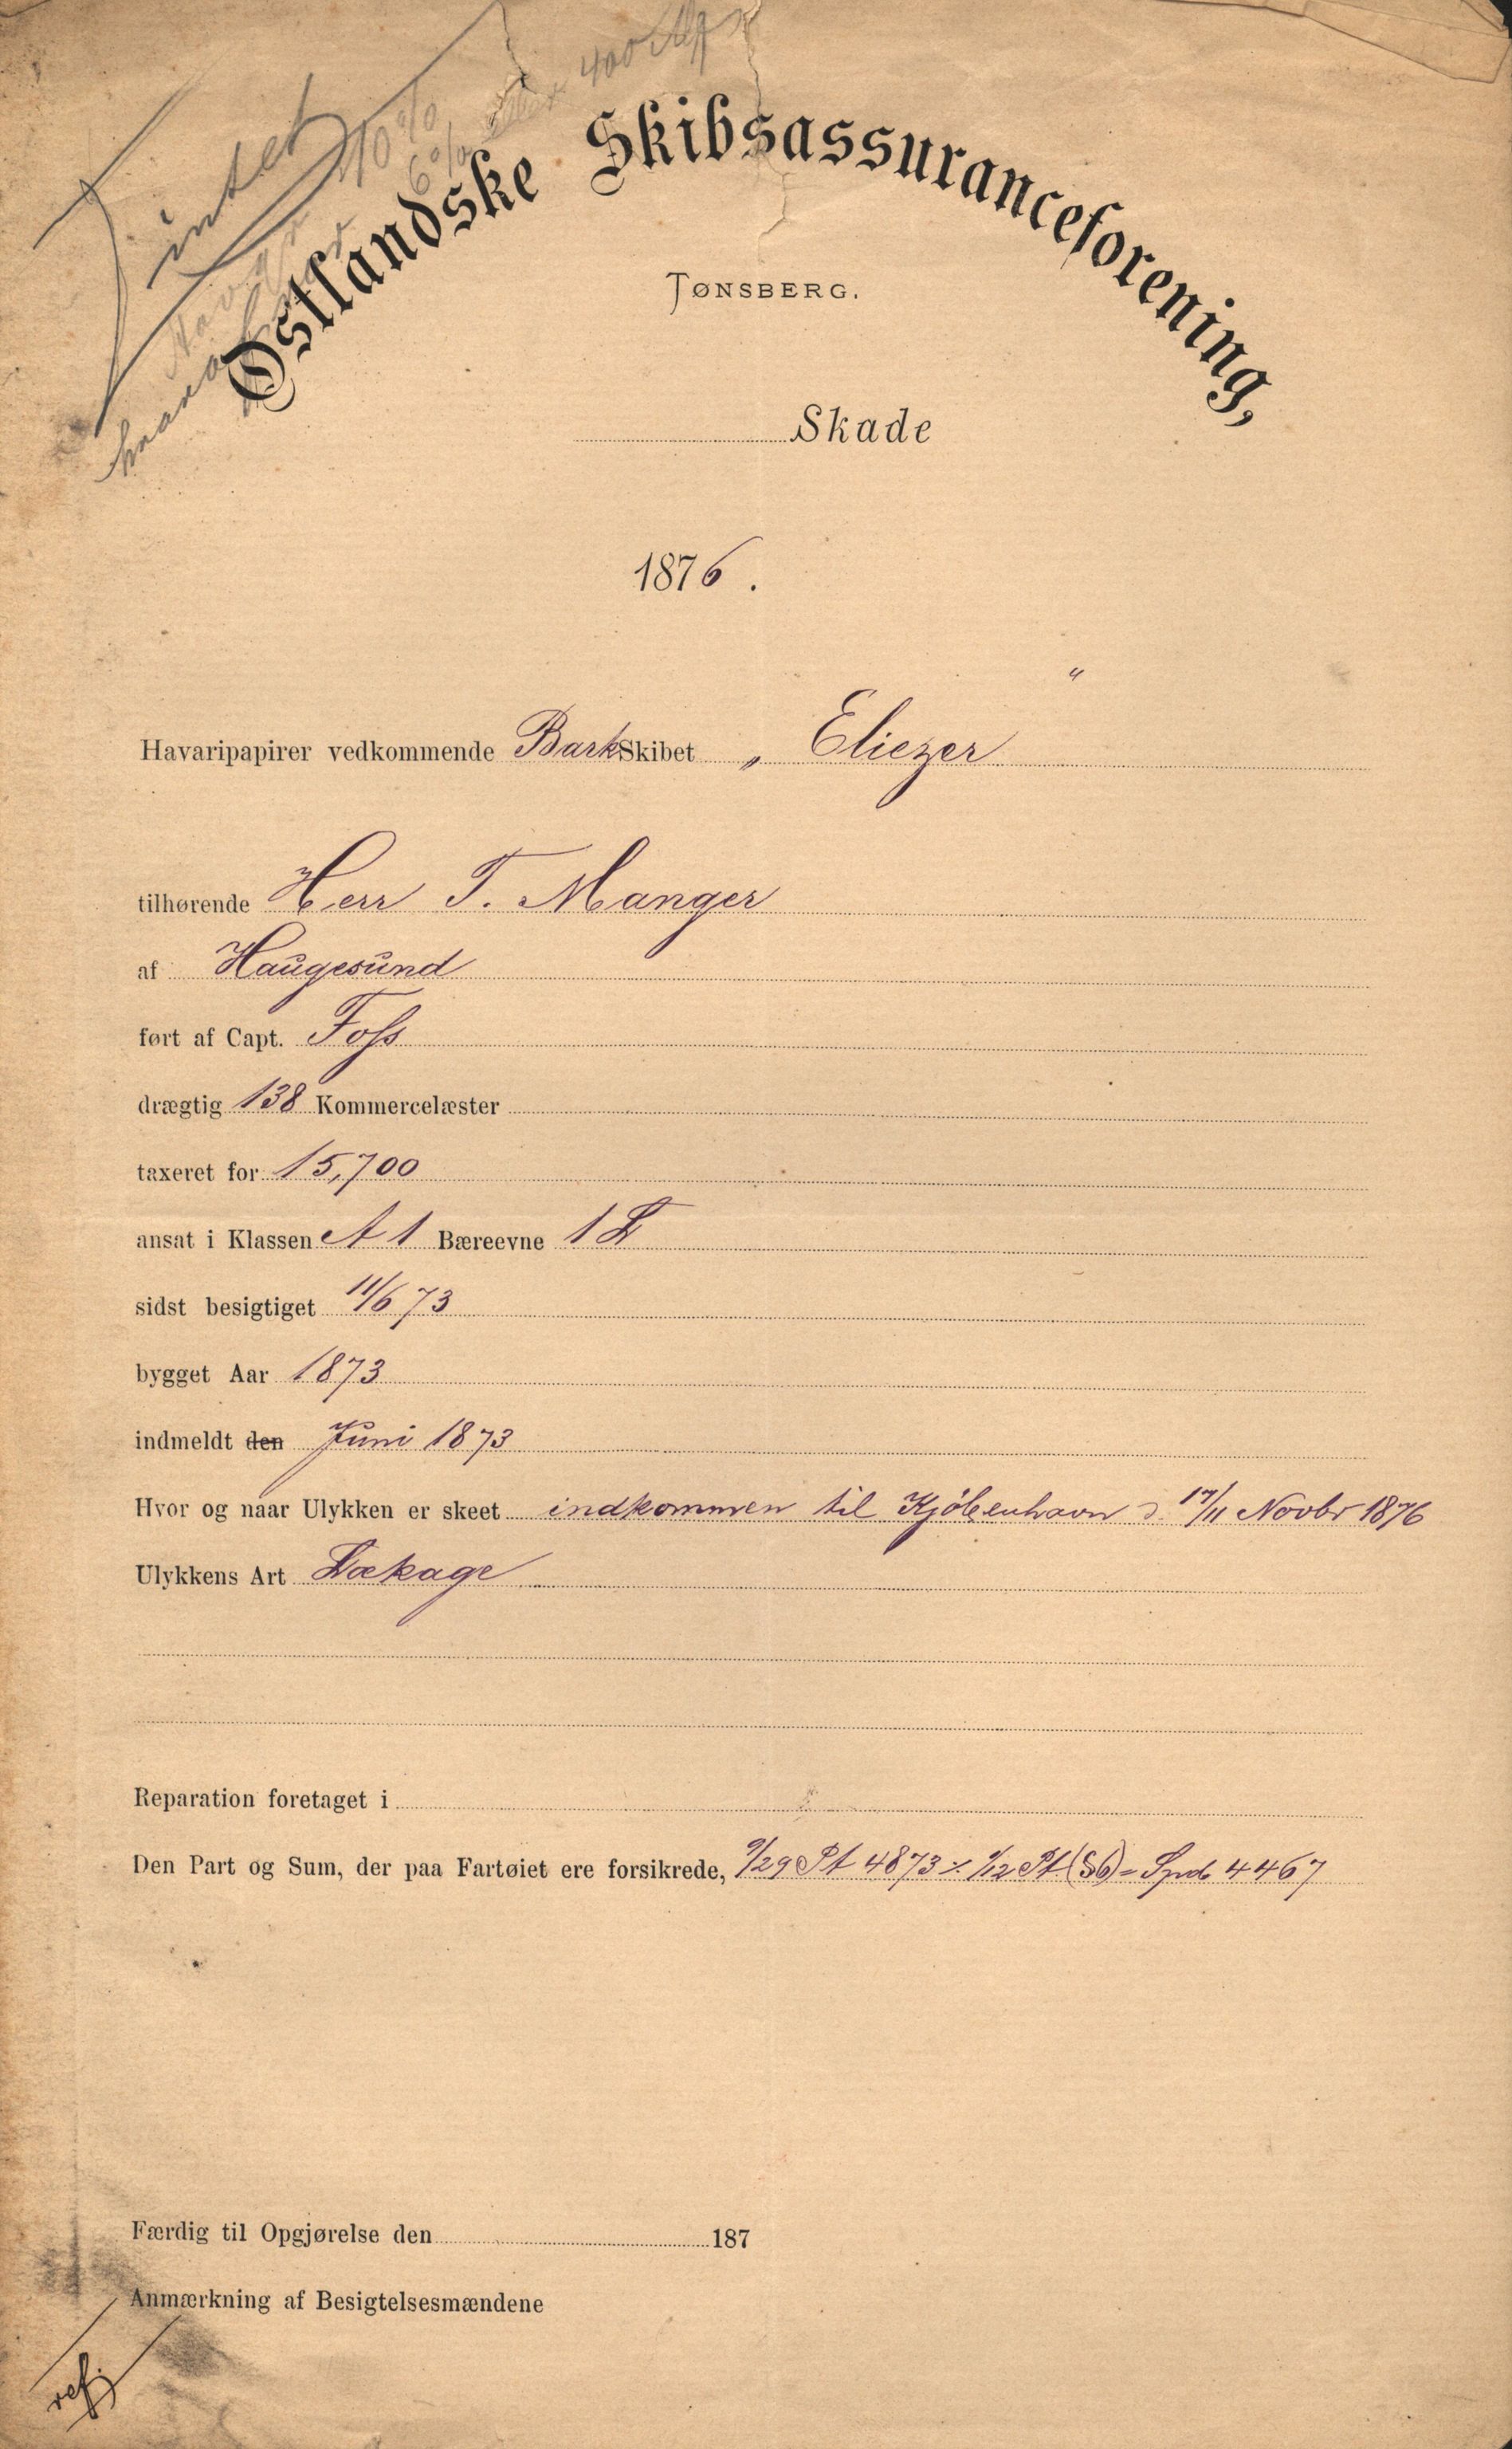 intet
10%
6% 400
Østlandske Skibsassuranceforening,
TØNSBERG.
Skade
1876.
Havaripapirer vedkommende BarkSkibet „Eliezer"
tilhørende Herr T. Manger
af Haugesund
ført af Capt. Foss
drægtig 138 Kommercelæster
taxeret for 15,700
ansat i Klassen A 1 Bæreevne 1 L
sidst besigtiget 11/6 73
bygget Aar 1873
indmeldt den Juni 1873
Hvor og naar Ulykken er skeet indkommen til Kjöbenhavn d. 17/11 Novbr 1876
Ulykkens Art Lækage
Reparation foretaget i
Den Part og Sum, der paa Fartøiet ere forsikrede, 9/29 Pt 4873 ⁒ 1/12 Pt (S6) = Spd 4467
Færdig til Opgjørelse den 187
Anmærkning af Besigtelsesmændene
ref.